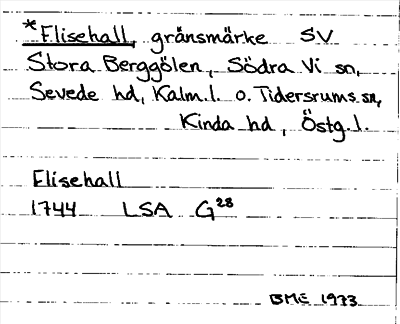 *Flisehall, gränsmärke SV
Stora Berggölen, Södra Vi sn,
Sevede hd, Kalm.l. o. Tidersrums sn,
Kinda hd, Östg.l.
Flisehall
1744 LSA G28
BME 1973